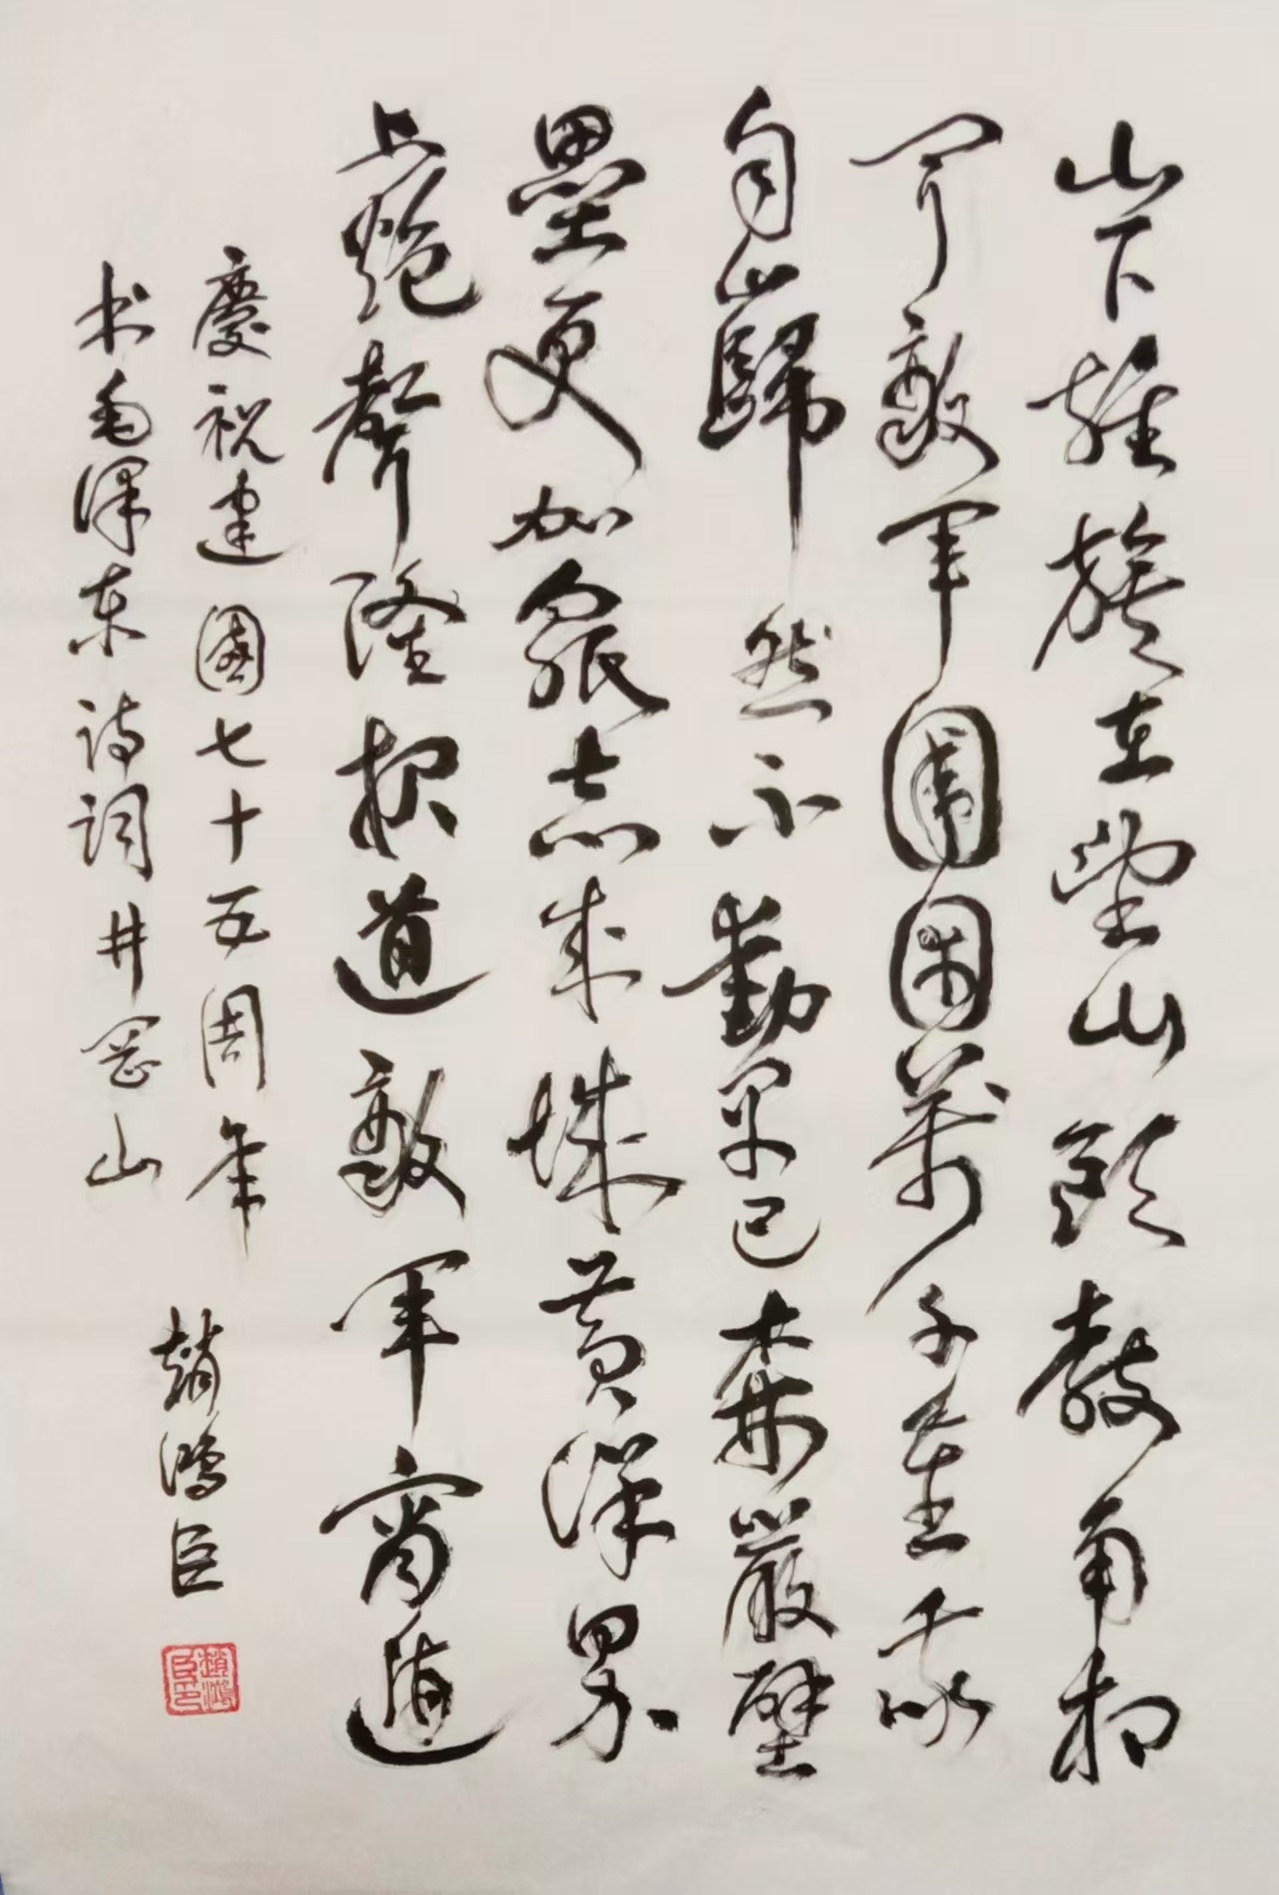 山下旌旗在望山頭鼓角相
聞敵軍圍困萬千重我
自巋然不動早已森嚴壁
壘更加眾志成城黃洋界
上炮聲隆報道敵軍宵遁
慶祝建國七十五周年
书毛泽东诗词井岡山
趙鴻臣
趙鴻臣印